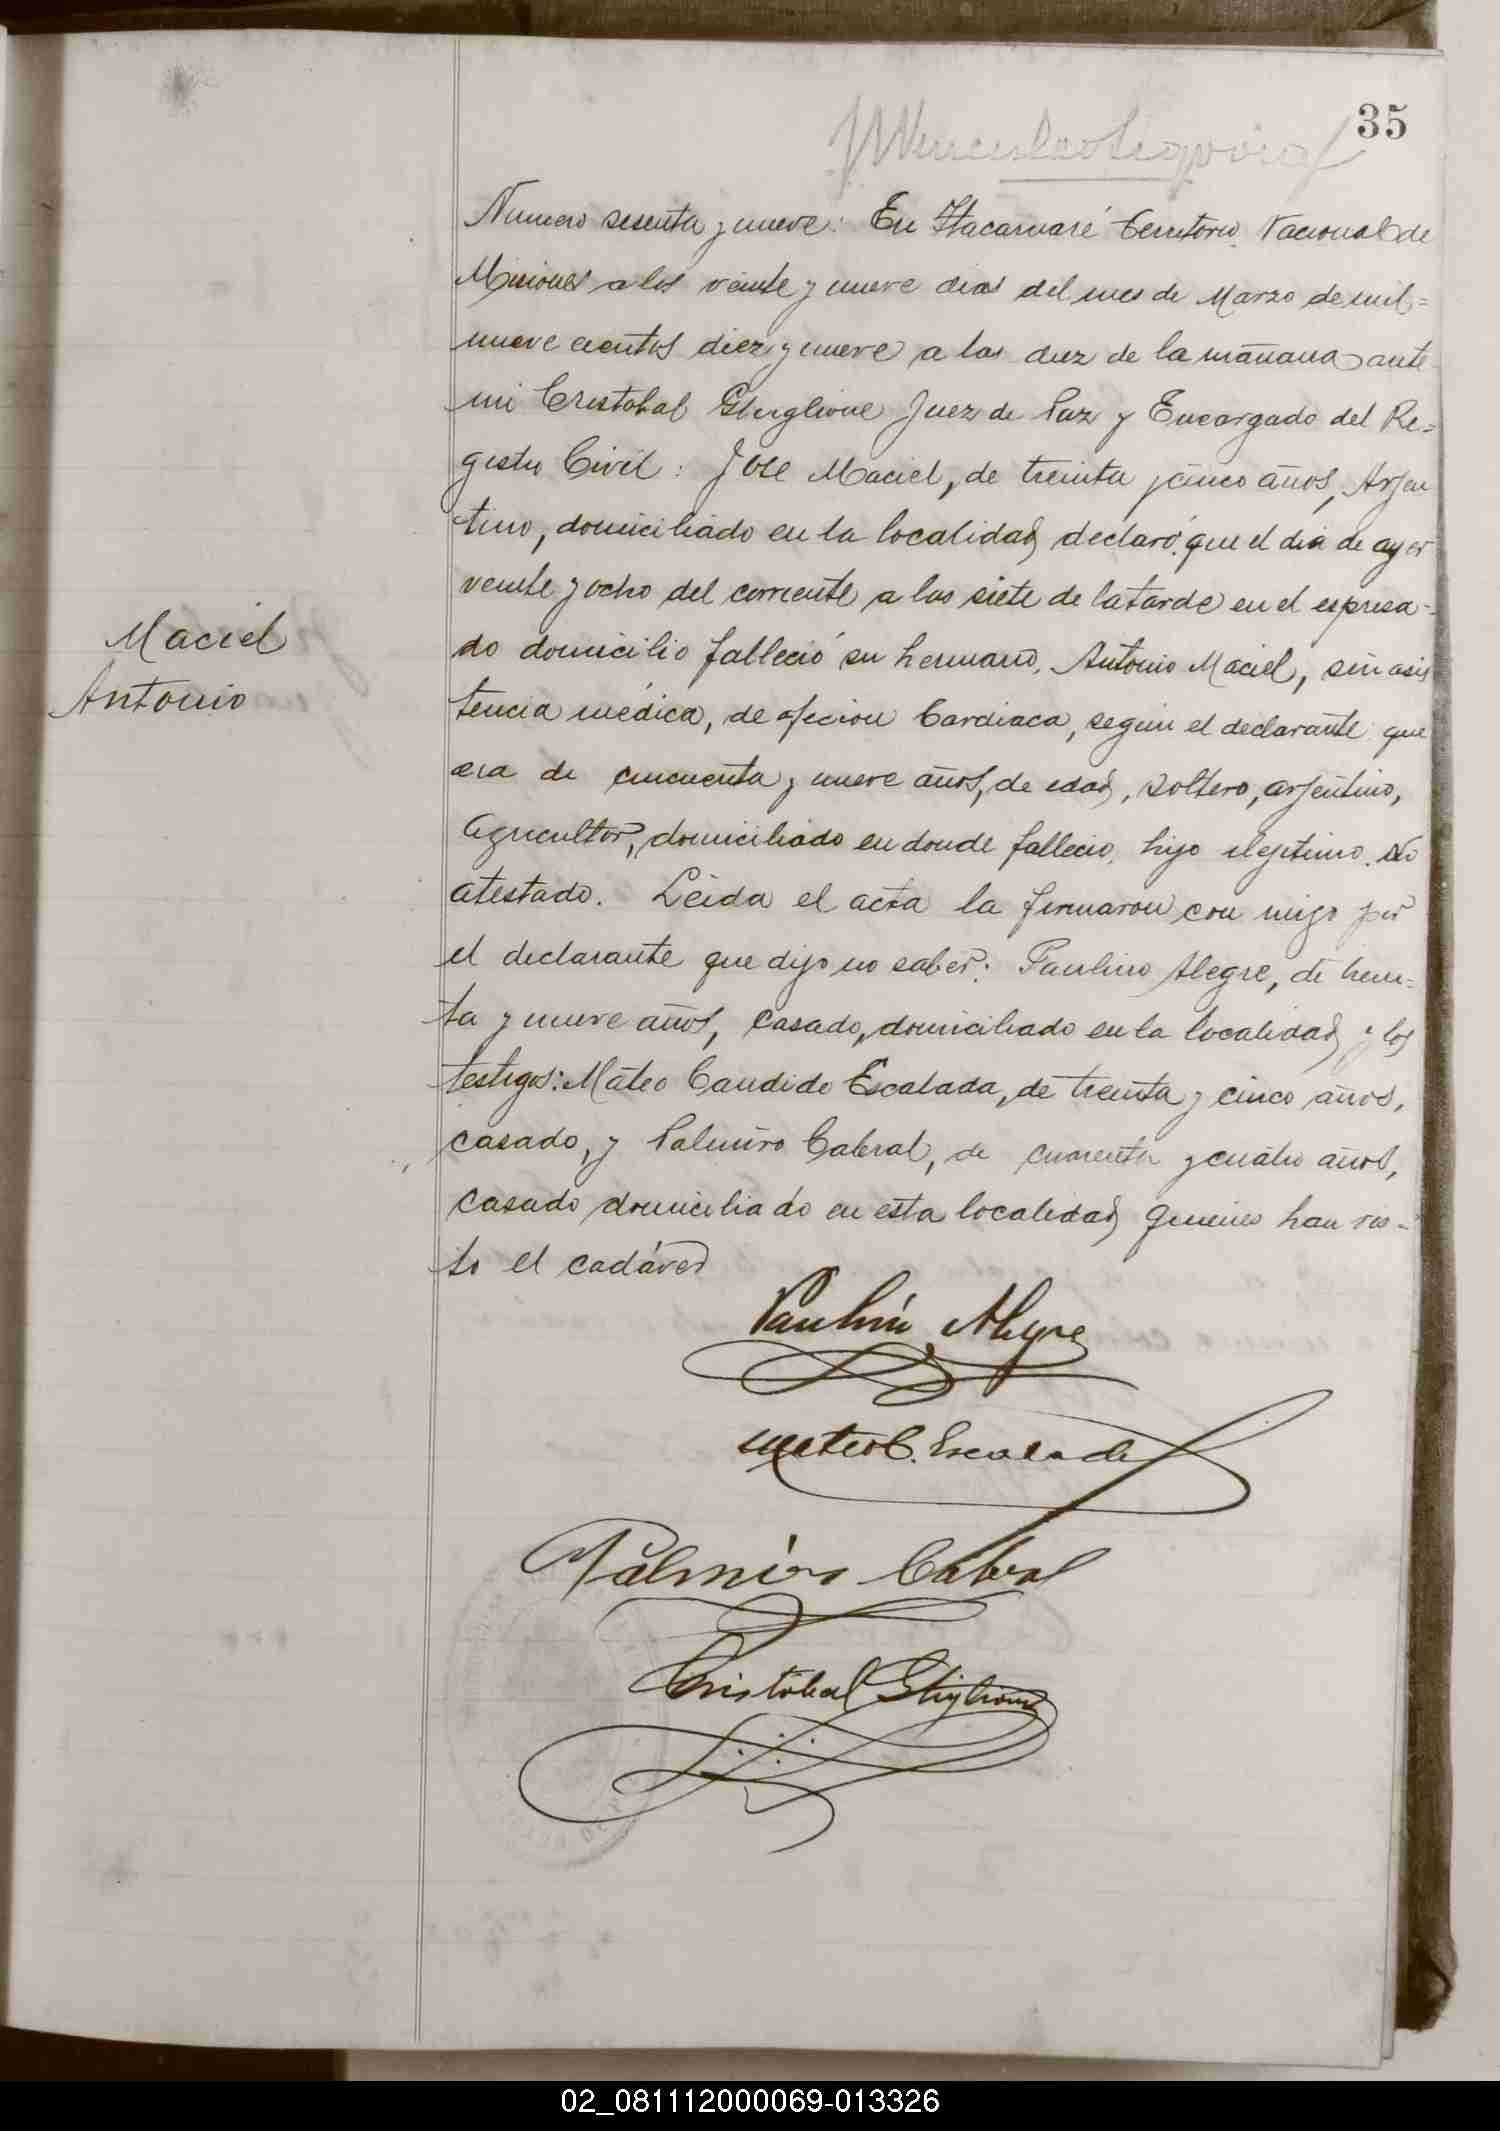 35
Numero sesenta y nueve: En Itacaruaré Territorio Nacional de
Misiones a los veinte y nueve dias del mes de Marzo de mil=
nueve cientos diez y nueve a las diez de la mañana ante
mi Cristobal Ghiglione Juez de Paz y Encargado del Re=
gistro Civil: José Maciel, de treinta y cinco años, Argen
tino, domiciliado en la localidad declaró: que el dia de ayer
veinte y ocho del corriente a las siete de la tarde en el espresa-
do domicilio falleció su hermano, Antonio Maciel, sin asis
Maciel
Antonio
tencia médica, de afecion Cardiaca, segun el declarante que
era de cincuenta y nueve años, de edad, soltero, argentino,
agricultor, domiciliado en donde fallecio, hijo ilegitimo. No
atestado. Leida el acta la firmaron con migo por
el declarante que dijo no saber: Paulino Alegre, de trein=
ta y nueve años, casado, domiciliado en la localidad y los
testigos: Mateo Candido Escalada, de treinta y cinco años,
casado, y Palmiro Cabral, de cuarenta y cuatro años,
casado domiciliado en esta localidad quienes han vis-
to el cadáver
Paulino Alegre
Mateo C. Escalada
Palmiro Cabral
Cristóbal Ghiglione
02_081112000069-013326